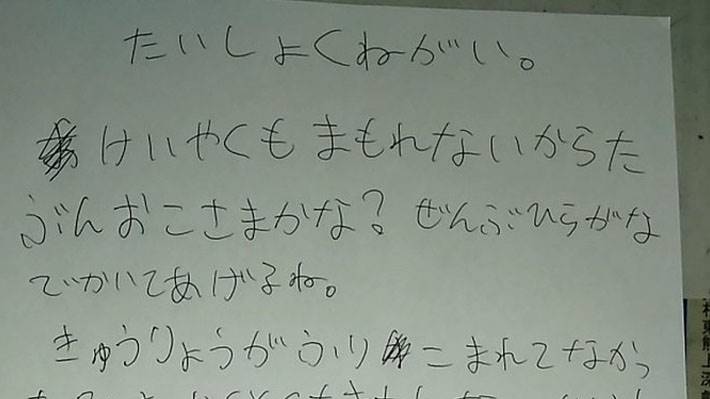 たいしょくねがい。
けいやくもまもれないからた
ぶんおこさまかな?ぜんぶひらがな
でかいてあげるね。
きゅうりょうがふりこまれてなかっ